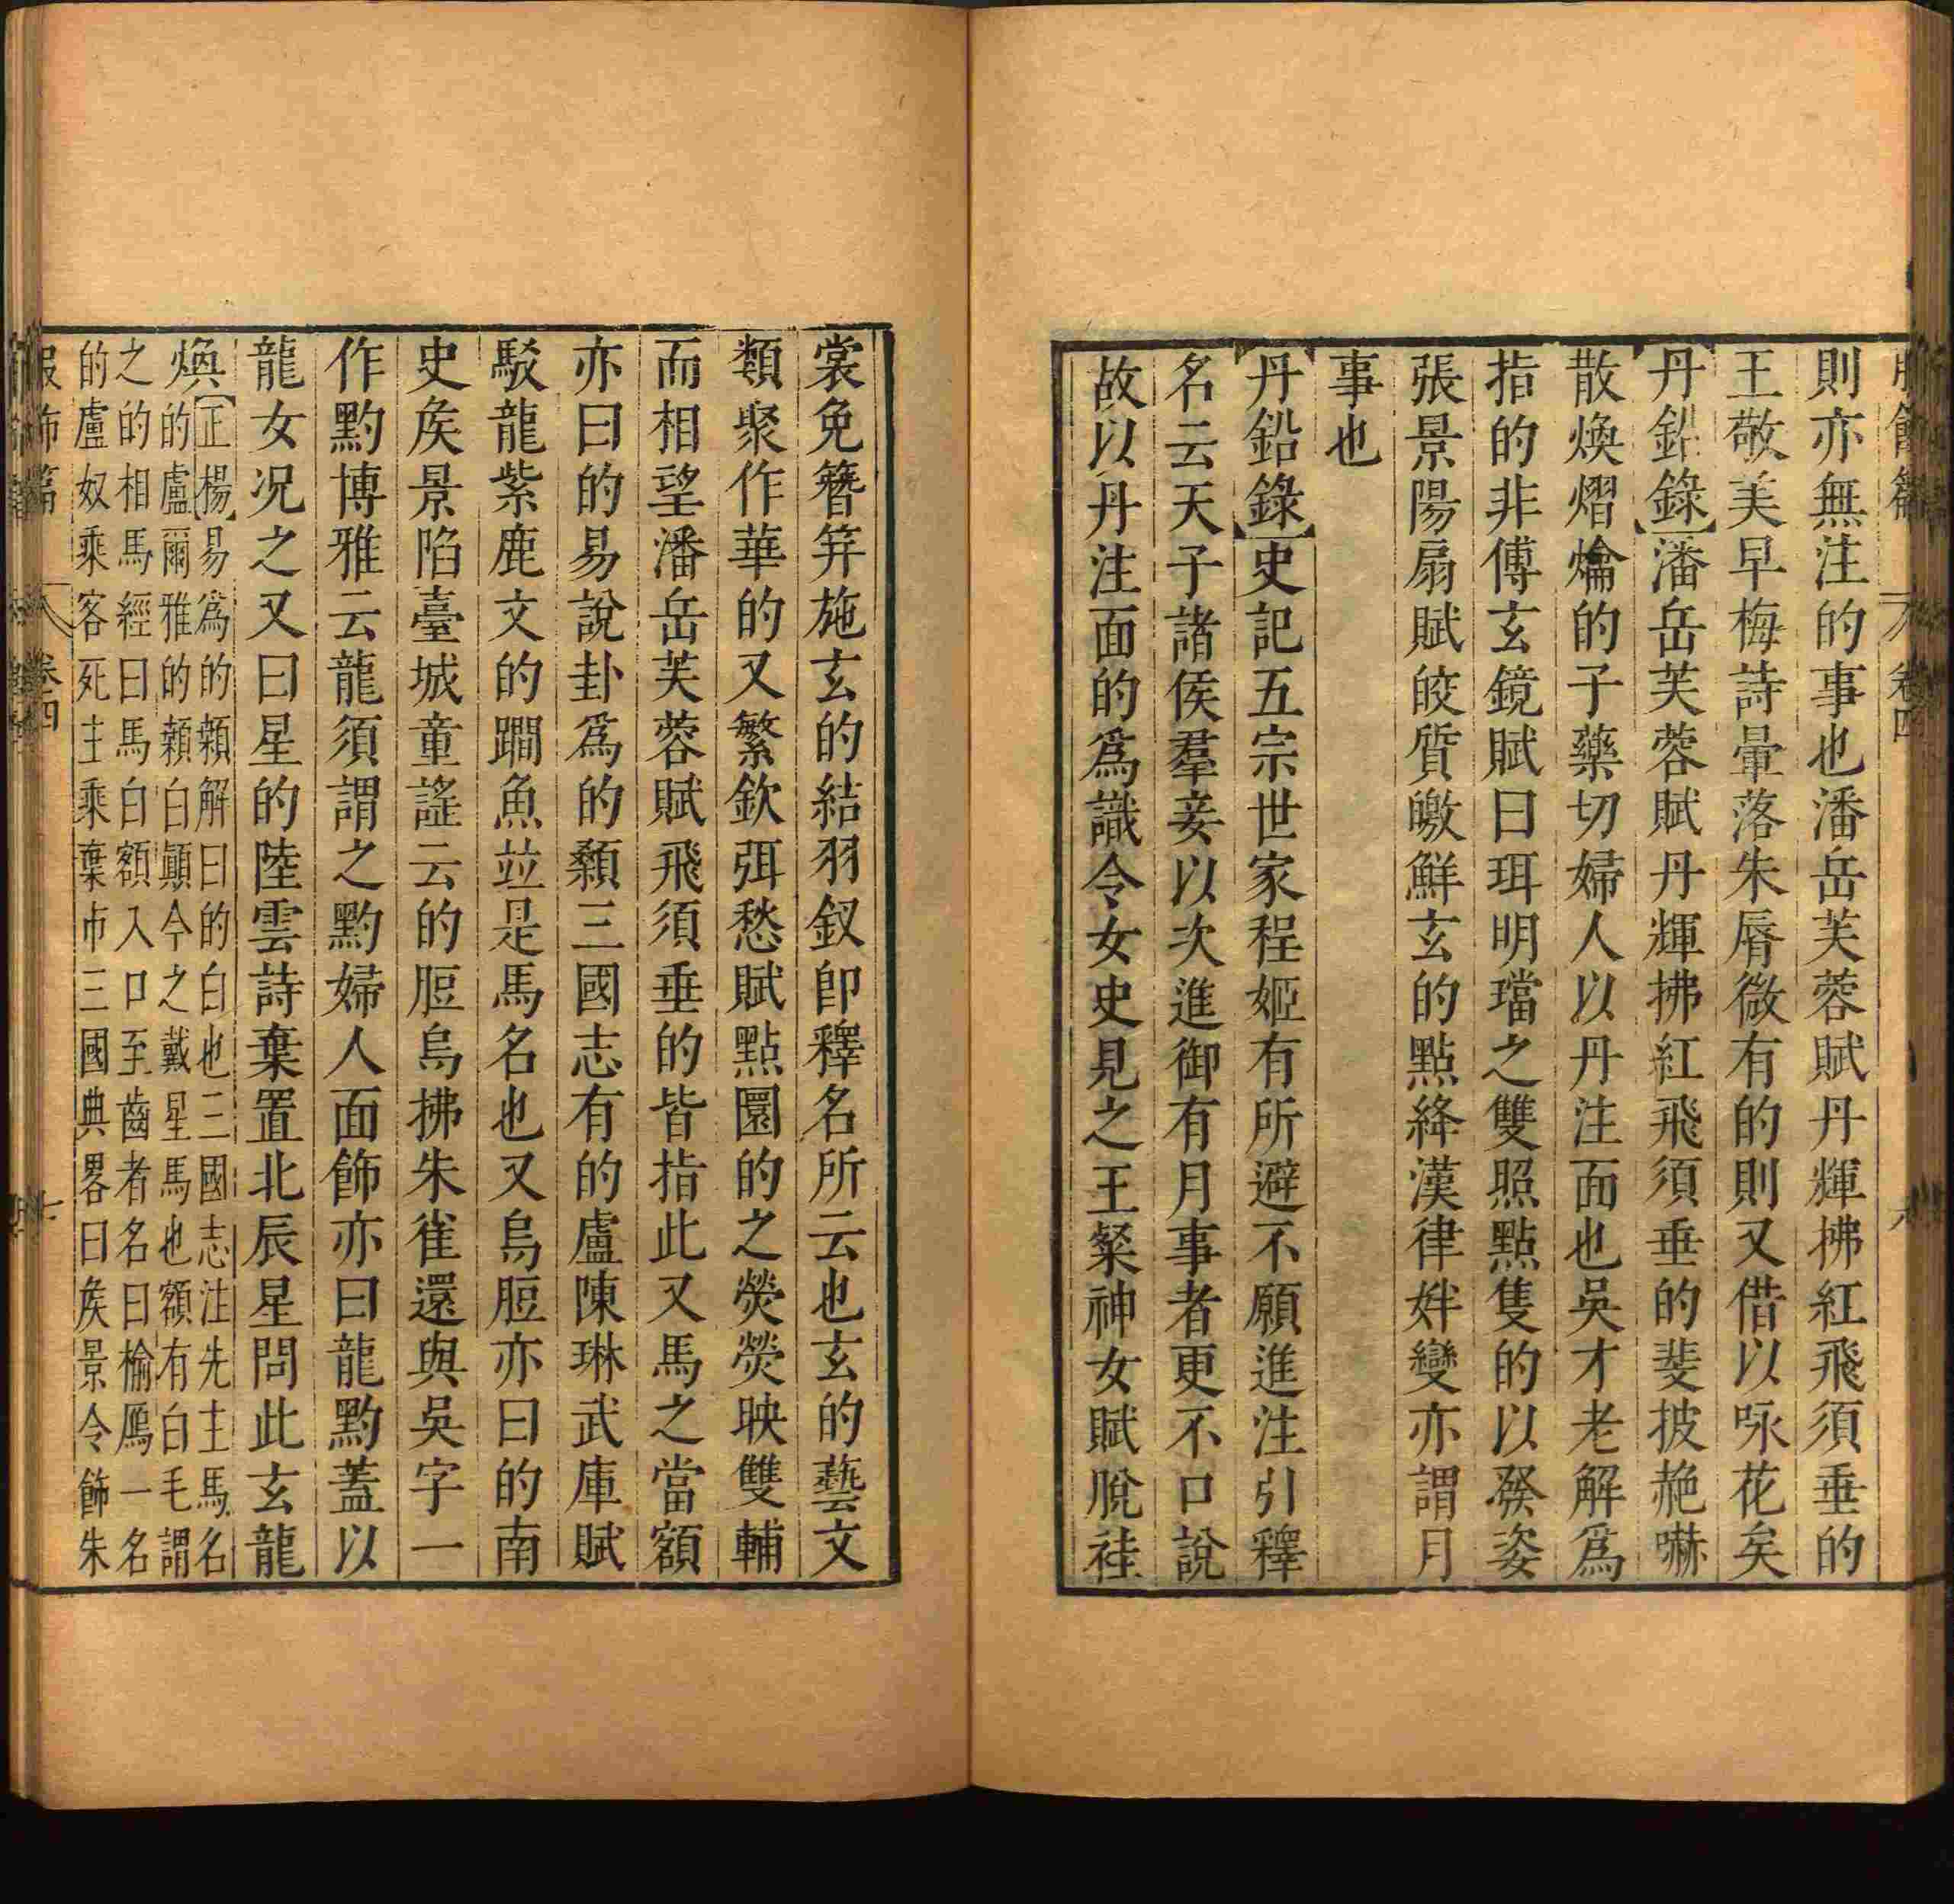 則亦無注的事也潘岳芙蓉賦丹輝拂紅飛須垂的
王敬美早梅詩暈落朱脣微有的則又借以咏花矣
丹鉛錄潘岳芙蓉賦丹輝拂紅飛須垂的斐披赩嚇
散煥熠爚的子藥切婦人以丹注面也吳才老解爲
指的非傅玄鏡賦曰珥明璫之雙照點隻的以發姿
張景陽扇賦皎質皦鮮玄的點絳漢律姅變亦謂月
事也
丹鉛錄史記五宗世家程姬有所避不願進注引釋
名云天子諸侯羣妾以次進御有月事者更不口說
故以丹注面的爲識令女史見之王粲神女賦脫袿
裳免簪笄施玄的結羽釵卽釋名所云也玄的藝文
類聚作華的又繁欽弭愁賦點圜的之熒熒映雙輔
而相望潘岳芙蓉賦飛須垂的皆指此又馬之當額
亦曰的易說卦爲的顙三國志有的盧陳琳武庫賦
駁龍紫鹿文的䦨魚竝是馬名也又烏脰亦曰的南
史矦景陷臺城童謠云的脰烏拂朱雀還與吳字一
作黓博雅云龍須謂之黓婦人面飾亦曰龍黓蓋以
龍女况之又曰星的陸雲詩棄置北辰星問此玄龍
煥正楊易爲的顙解曰的白也三國志注先主馬名
的盧爾雅的顙白顚今之戴星馬也額有白毛謂
之的相馬經曰馬白額入口至齒者名曰榆鴈一名
的盧奴乘客死主乘棄市三國典畧曰矦景令飾朱
服飾篇 卷四 七